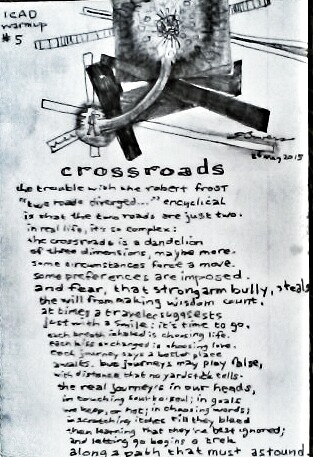 ICAD
warmup
#5
26 may 2015
crossroads
the trouble with the robert frost
"two roads diverged..." encyclical
is that the two roads are just two.
in real life, it's so complex:
the crossroads is a dandelion
of three dimensions, maybe more.
some circumstances force a move.
some preferences are imposed.
and fear, that strongarm bully, steals
the will from making wisdom count.
at times a traveler suggests
just with a smile: it's time to go.
each breath inhaled is choosing life.
each kiss exchanged is choosing love.
each journey says a better place
awaits. but journeys may play false,
with distance that no yardstick tells.
the real journey's in our heads,
in touching soul to soul; in goals
we keep, or not; in choosing words;
in scratching itches till they bleed
then learning that they're best ignored;
and letting go begins a trek
along a path that must astound.